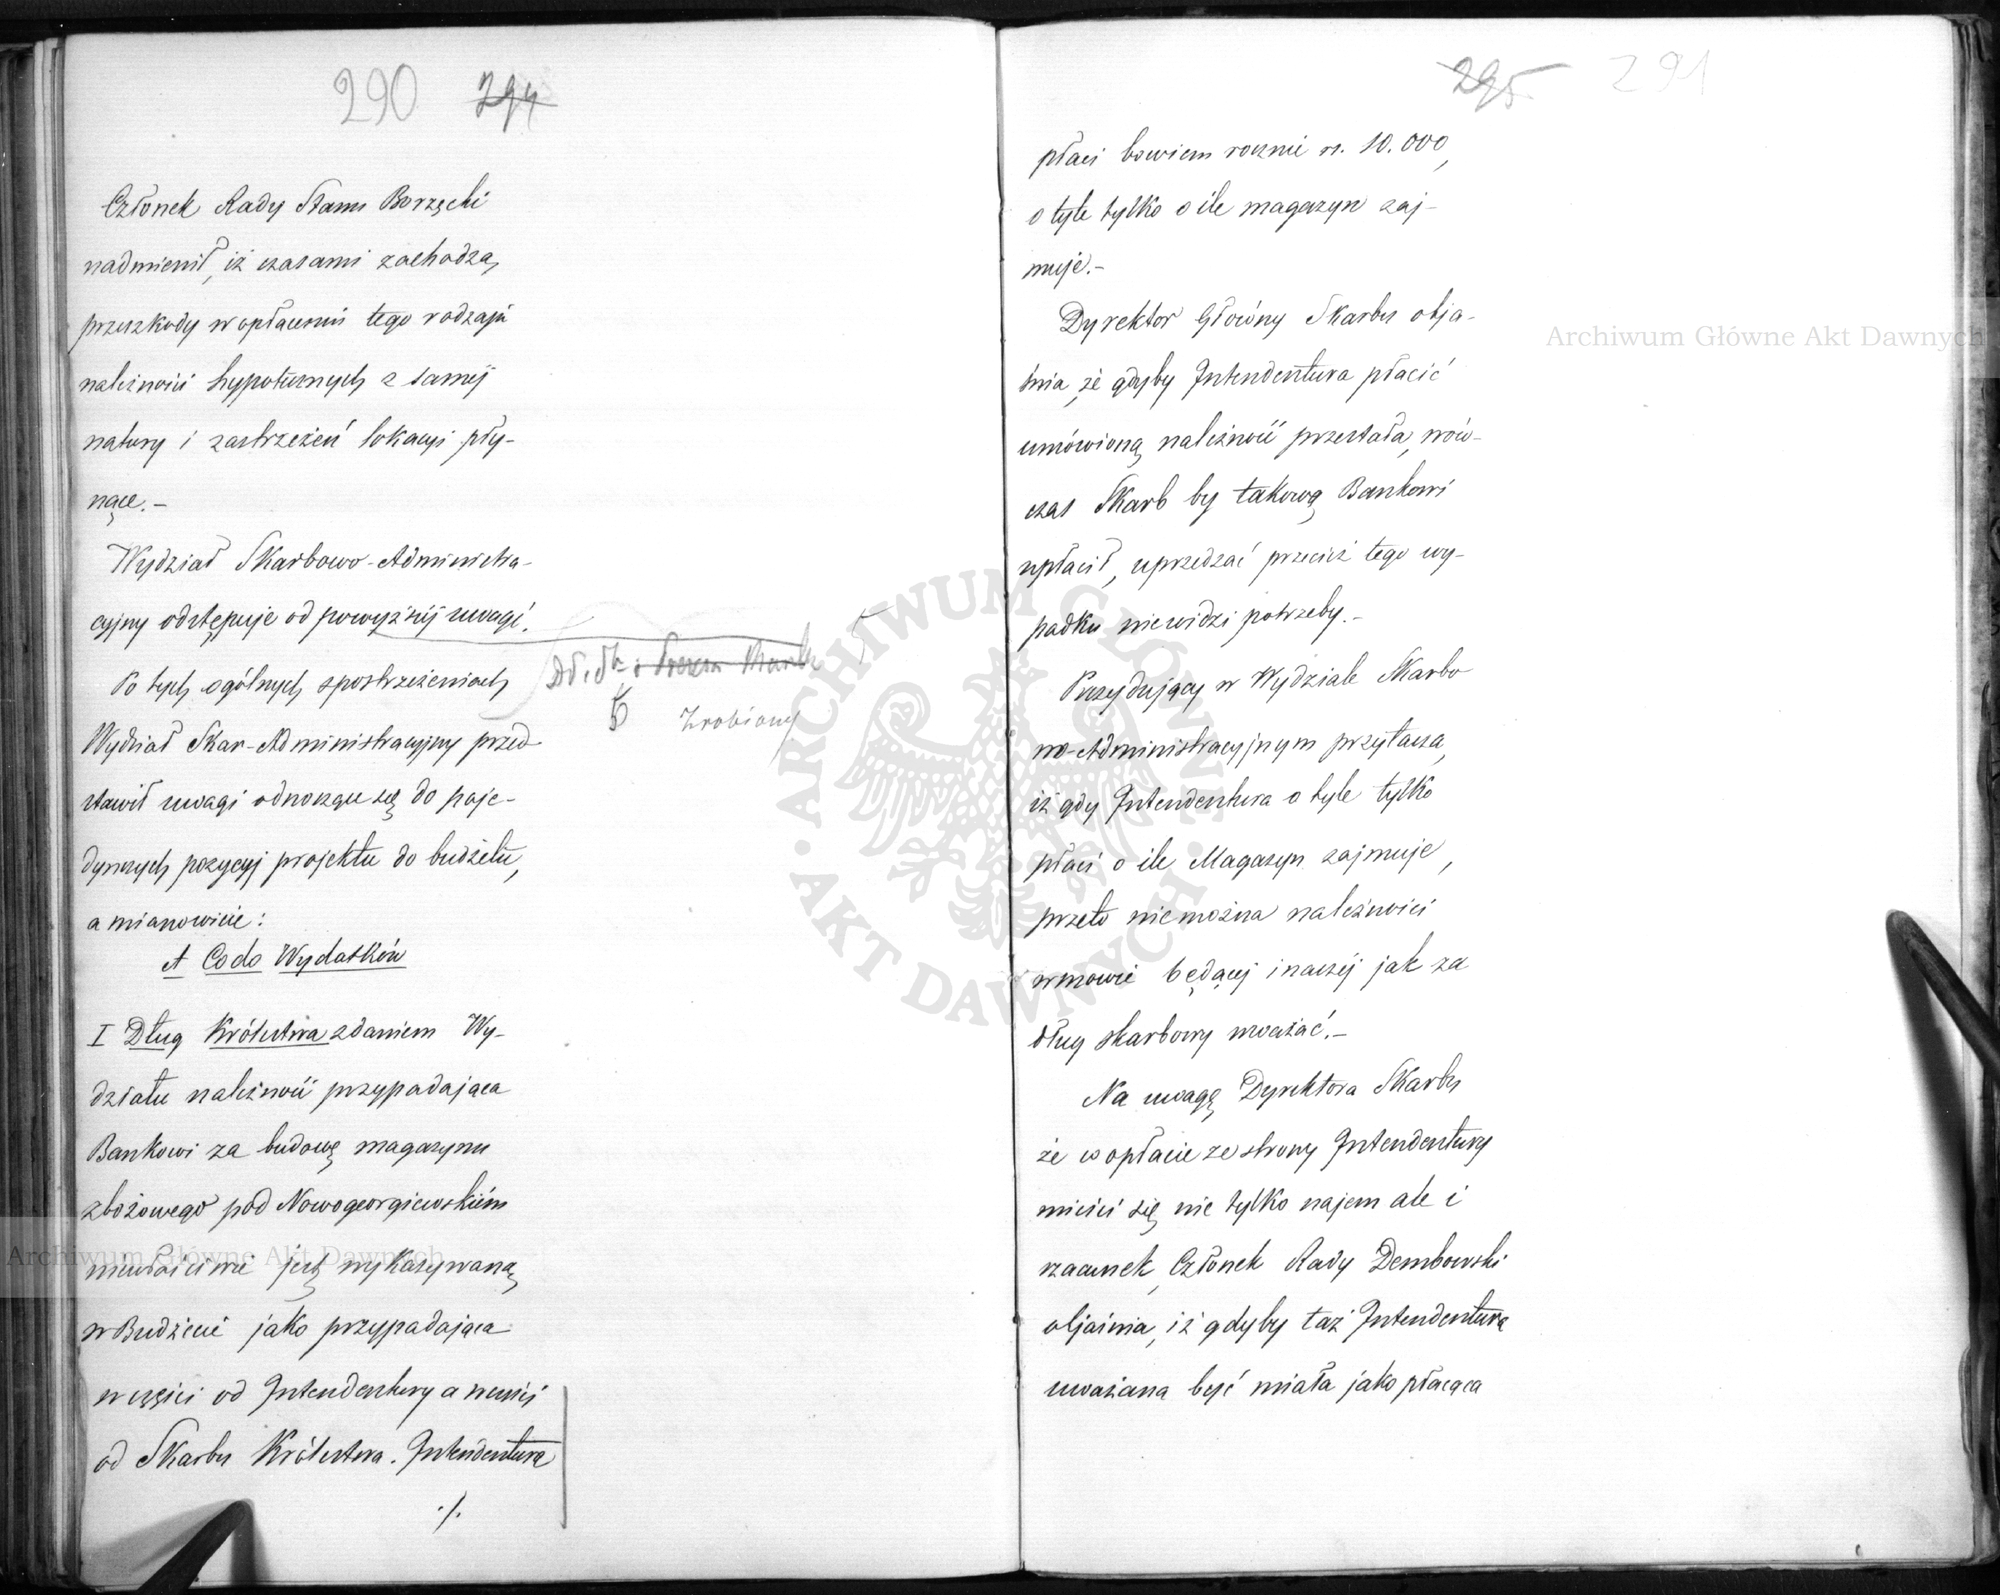 290 294
Członek Rady Stanu Borzęcki
nadmienił, iż czasami zachodzą
przeszkody w opłaceniu tego rodzaju
należności hypotecznych z samej
natury i zastrzeżeń lokacyi pły-
nące.-
Wydział Skarbowo-Administra-
cyjny odstępuje od powyższej uwagi.
Po tych ogólnych spostrzeżeniach
Zrobiony
Wydział Skar-Administracyjny przed-
stawił uwagi odnoszące się do poje-
dynczych pozycyj projektu do budżetu,
a mianowicie:
A Co do Wydatków
I Dług Królestwa zdaniem Wy-
działu należność przypadająca
Bankowi za budowę magazynu
zbożowego pod Nowogeorgiewskiém
niewłaściwie jest wykazywaną
w Budżecie jako przypadająca
w części od Intendentury a w części
od Skarbu Królestwa. Intendentura
./.
295 291
płaci bowiem rocznie rs. 10.000,
o tyle tylko o ile magazyn zaj-
muje.-
Dyrektor Główny Skarbu obja-
śnia, że gdyby Intendentura płacić
umówioną należność przestała, wów-
czas Skarb by takową Bankowi
opłacił, uprzedzać przecież tego wy-
padku niewidzi potrzeby.-
Prezydujący w Wydziale Skarbo
wo-Administracyjnym przytacza,
iż gdy Intendentura o tyle tylko
płaci o ile Magazyn zajmuje,
przeto niemożna należności
w mowie będącej inaczéj jak za
dług skarbowy uważać.-
Na uwagę Dyrektora Skarbu
że w opłacie ze strony Intendentury
mieści się nie tylko najem ale i
szacunek, Członek Rady Dembowski
objaśnia, iż gdyby taż Intendentura
uważana być miała jako płacąca
Archiwum Główne Akt Dawnych
Archiwum Główne Akt Dawnych
· ARCHIWUM GŁÓWNE · AKT DAWNYCH